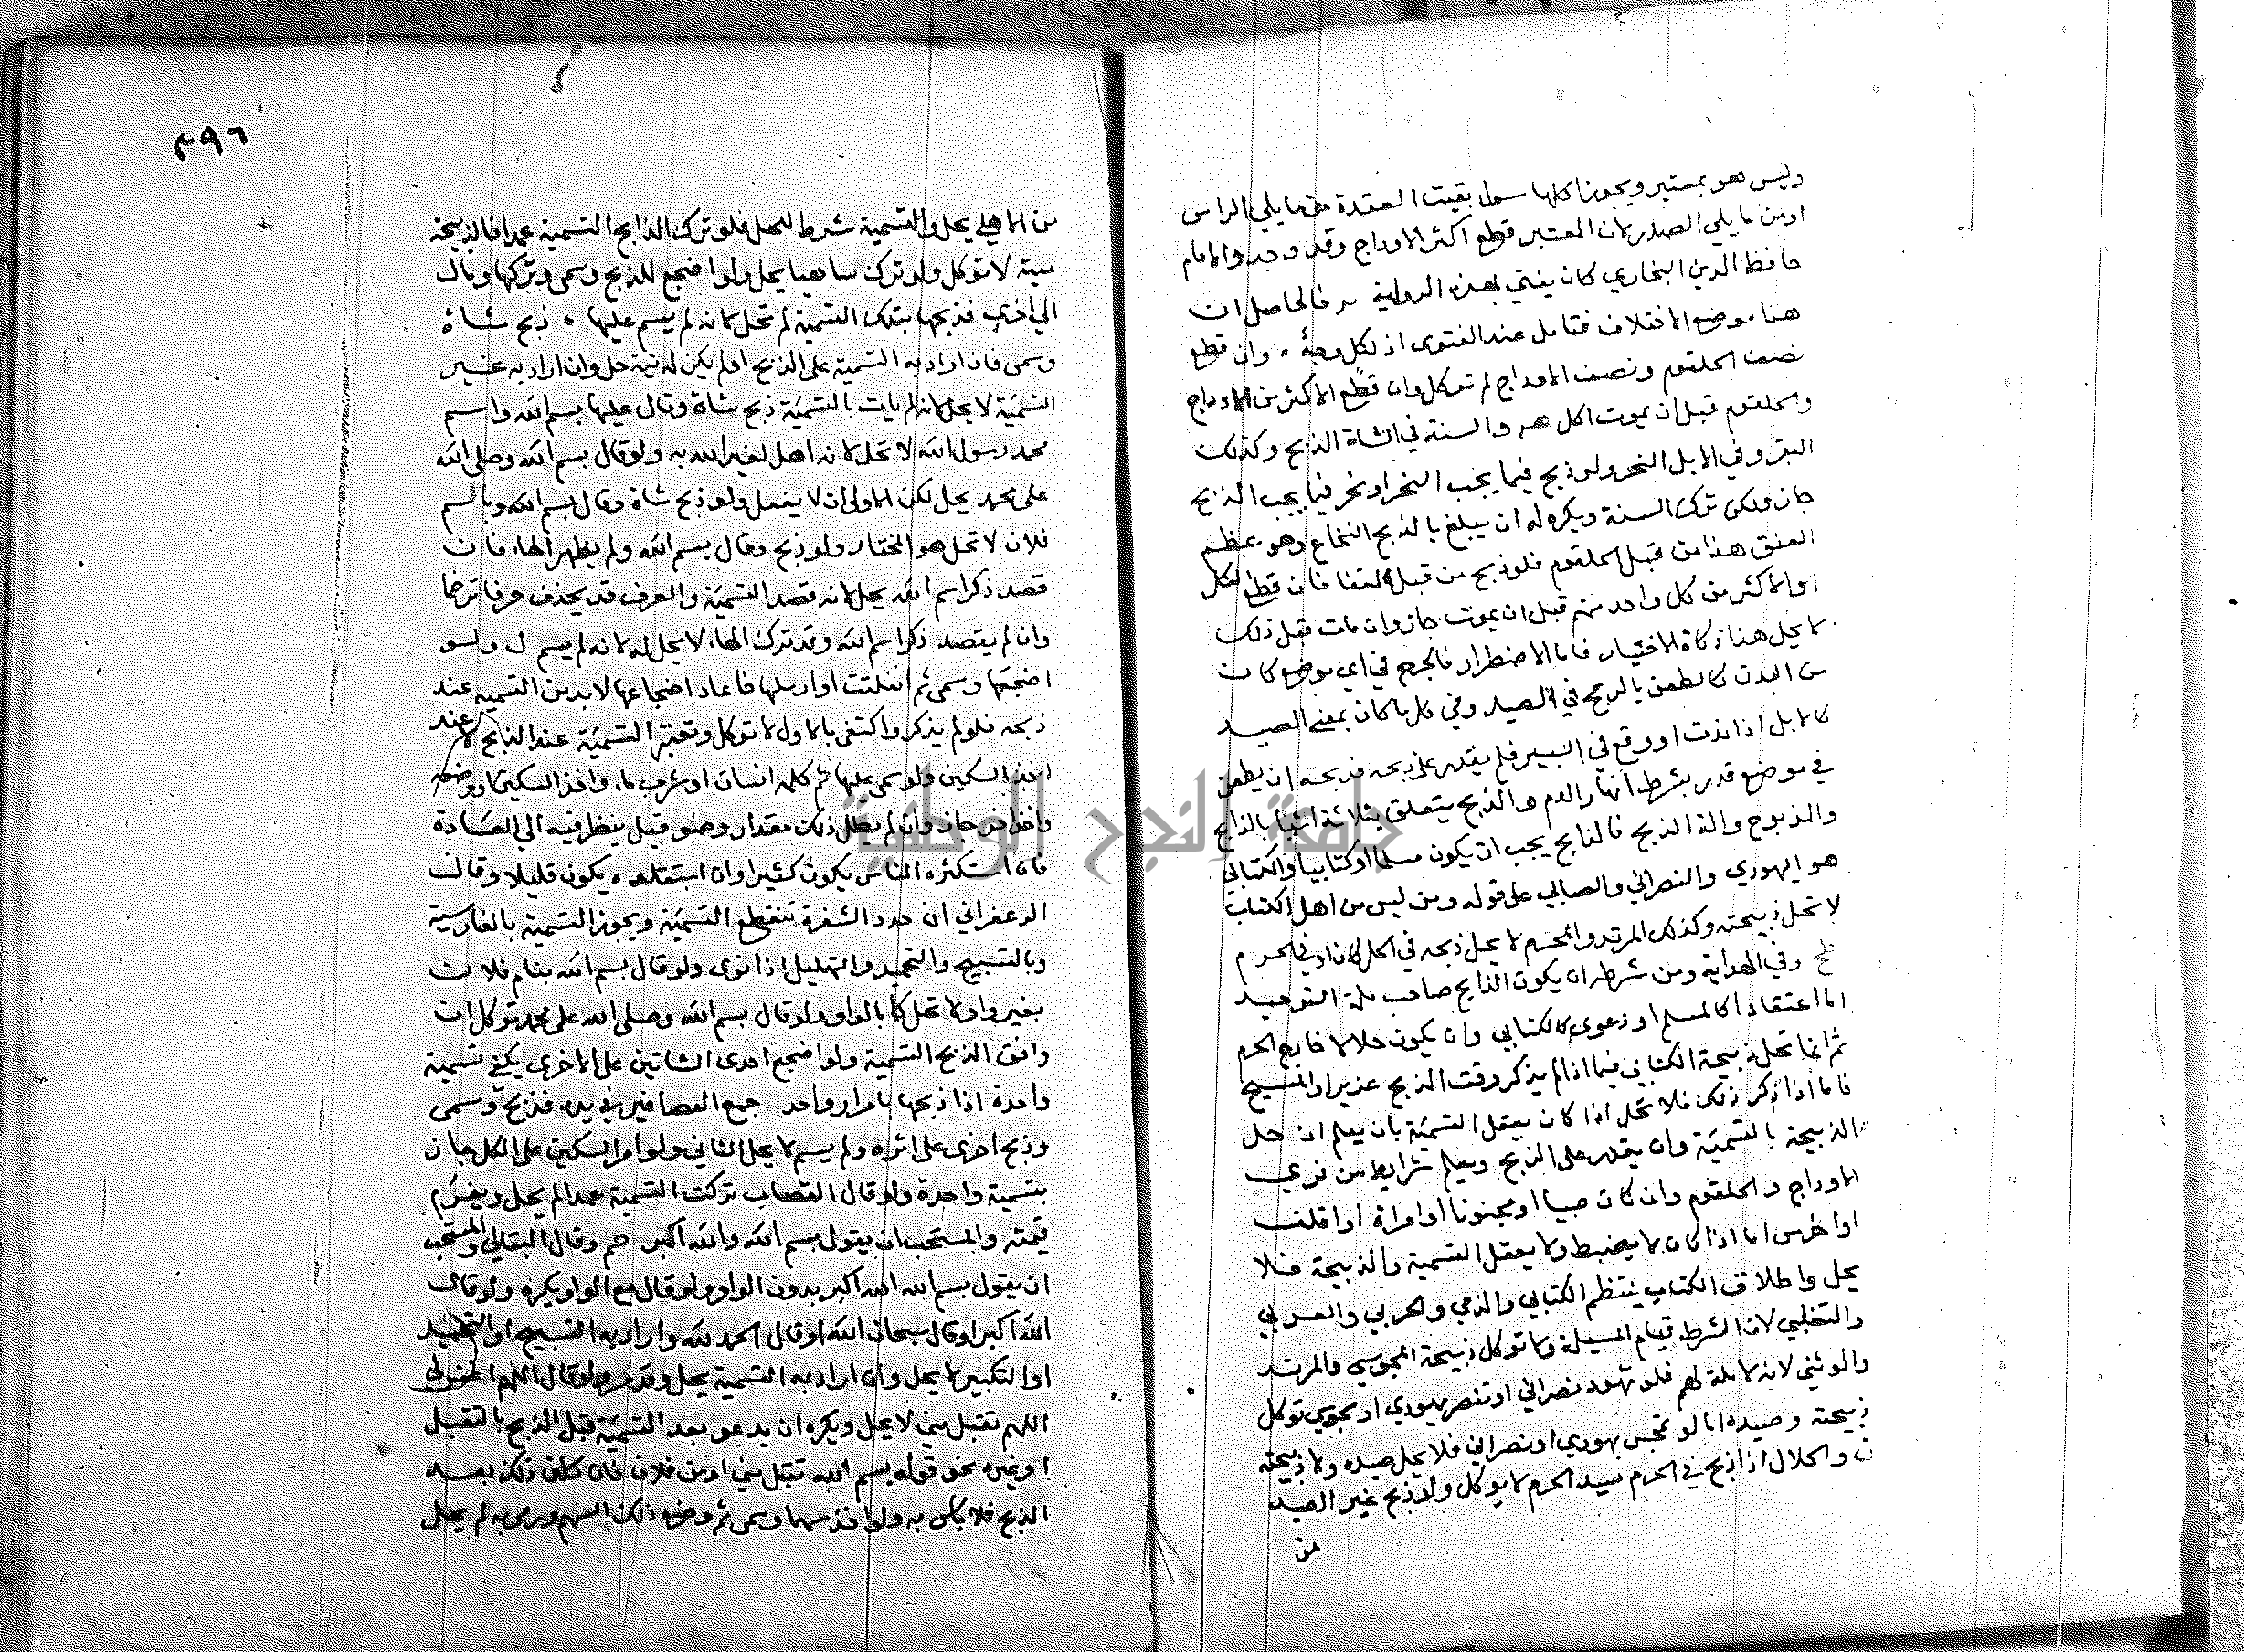 وليس هو بمعتبر ويجوز اكلها سوا بقيت العقدة مما يلي الراس
او مما يلي الصدر لان المعتبر قطع اكثر الاوداج وقد وجد والامام
حافظ الدين البخاري كان يفتي بهذه الرواية فالحاصل ان
هنا موضع الاختلاف فتامل عند الفتوى اذ لكل وجهة وان قطع
نصف الحلقوم ونصف الاوداج لم توكل وان قطع الاكثر من الاوداج
والحلقوم قبل ان يموت اكل والسنة في الشاة الذبح وكذلك
البقر وفي الابل النحر ولو ذبح فيما يجب النحر او نحر فيما يجب الذبح
جاز ولكن ترك السنة ويكره له ان يبلغ بالذبح النخاع وهو عظم
العنق هذا من قبل الحلقوم فلو ذبح من قبل القفا فان قطع الكل
او الاكثر من كل واحد منهم قبل ان يموت جاز وان مات قبل ذلك
لا يحل هذا ذكاة الاختيار فاما الاضطرار فالجرح في اي موضع كان
من البدن كالطعن بالرمح في الصيد وفي كل ما كان بمعنى الصيد
كالابل اذا ندت او وقع في البير فلم يقدر على ذبحه فذبحه ان يطعن
في موضع قدر بشرط انهار الدم والذبح يتعلق بثلاثة اشيا بالذابح
والمذبوح والة الذبح فالذابح يجب ان يكون مسلما او كتابيا والكتابي
هو اليهودي والنصراني والصابي على قوله ومن ليس من اهل الكتاب
لا تحل ذبيحته وكذلك المرتد والمحرم لا يحل ذبحه في الحل كان او في الحرم
وفي الهداية ومن شرطه ان يكون الذابح صاحب ملة التوحيد
اما اعتقادا كالمسلم او دعوى كالكتابي وان يكون حلالا خارج الحرم
ثم انما تحل ذبيحة الكتابي فيما اذا لم يذكر وقت الذبح عزير او المسيح
فاما اذا ذكر ذلك فلا تحل اذا كان يعقل التسمية بان يعلم ان حل
الذبيحة بالتسمية وان يقدر على الذبح ويعلم شرايط من فري
الاوداج والحلقوم وان كان صبيا او مجنونا او امراة او اقلف
او اخرس اما اذا كان لا يضبط ولا يعقل التسمية والذبيحة فلا
يحل واطلاق الكتاب ينتظم الكتابي والذمي والحربي والعربي
والتغلبي لان الشرط قيام الملة ولا توكل ذبيحة المجوسي والمرتد
والوثني لانه لا ملة لهم فلو تهود نصراني او تنصر يهودي او مجوسي توكل
ذبيحته وصيده اما لو تمجس يهودي او نصراني فلا يحل صيده ولا ذبيحته
والحلال اذا ذبح في الحرم صيد الحرم لا يوكل ولو ذبح غير الصيد
من
٣٩٦
من الاهلي يحل والتسمية شرط للحل فلو ترك الذابح التسمية عمدا فالذبيحة
ميتة لا توكل ولو ترك ساهيا يحل ولو اضجع للذبح وسمى وتركها ومال
الى اخرى فذبحها بتلك التسمية لم تحل لانه لم يسم عليها ذبح شاة
وسمى فان اراد به التسمية على الذبح او لم يكن له نية حل وان اراد به غير
التسمية لا يحل لانه لم يات بالتسمية ذبح شاة وقال عليها بسم الله واسم
محمد رسول الله لا تحل لانه اهل لغير الله به ولو قال بسم الله وصلى الله
على محمد يحل لكن الاولى ان لا يفعل ولو ذبح شاة وقال بسم الله وباسم
فلان لا تحل هو المختار ولو ذبح وقال بسم الله ولم يظهر الهاء فان
قصد ذكر اسم الله يحل لانه قصد التسمية والعرف قد يحذف حرفا ترخيما
وان لم يقصد ذكر اسم الله وقد ترك الهاء لا يحل له لانه لم يسم ولو
اضجعها وسمى ثم انفلتت او ارسلها فاعاد اضجاعها لا بد من التسمية عند
ذبحه فلو لم يذكر واكتفى بالاول لا توكل وتعتبر التسمية عند الذبح لا عند
اخذ السكين ولو سمى عليها ثم كلمه انسان او شرب ماء واخذ السكين او وضعه
واخذ اخر جاز وان لم يطل ذلك مقدار وضو قيل ينظر فيه الى العادة
فان استكثره الناس يكون كثيرا وان استقلوه يكون قليلا وقال
الزعفراني ان حدد الشفرة تنقطع التسمية ويجوز التسمية بالفارسية
وبالتسبيح والتحميد والتهليل اذا نوى ولو قال بسم الله بنام فلان
بغير واو لا تحل كما بالواو ولو قال بسم الله وصلى الله على محمد توكل ان
وافق الذبح التسمية ولو اضجع احدى الشاتين على الاخرى يكفي تسمية
واحدة اذا ذبحها بامرار واحد جمع العصافير في يده فذبح وسمى
وذبح اخرى على اثره ولم يسم لا يحل الثاني ولو امر السكين على الكل جاز
بتسمية واحدة ولو قال القصاب تركت التسمية عمدا لم يحل ويغرم
قيمته والمستحب ان يقول بسم الله والله اكبر وقال البقالي والمستحب
ان يقول بسم الله الله اكبر بدون الواو ولو قال مع الواو يكره ولو قال
الله اكبر او قال سبحان الله او قال الحمد لله واراد به التسبيح او التحميد
او التكبير لا يحل وان اراد به التسمية يحل وقد مر ولو قال اللهم اغفر لي
اللهم تقبل مني لا يحل ويكره ان يدعو بعد التسمية قبل الذبح بالتقبل
او غيره نحو قوله بسم الله تقبل مني او من فلان فان كان ذلك بعد
الذبح فلا باس به ولو اخذ سهما وسمى ثم وضع ذلك السهم ورمى به لم يحل
جامعة النجاح الوطنية